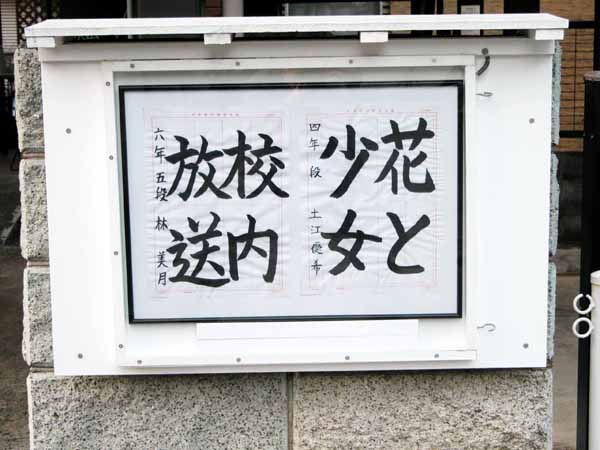 花と
少女
四年 段 土江優希
校内
放送
六年五段 林 美月